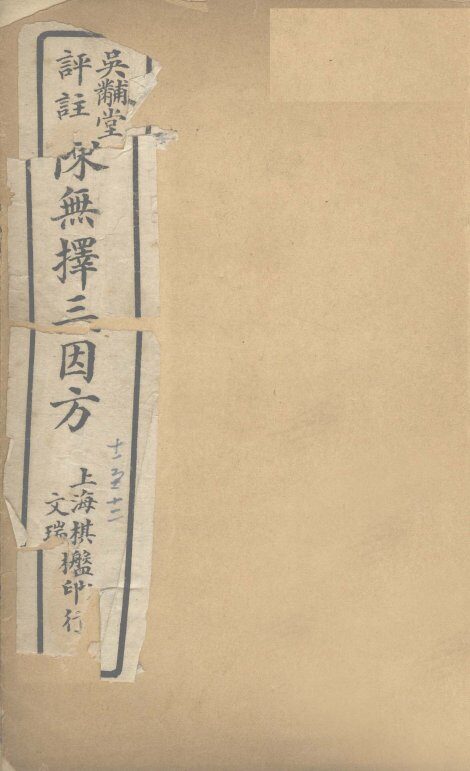 吳黼堂
評註
陳無擇三因方
十一至十二
上海棋盤
文瑞
印行